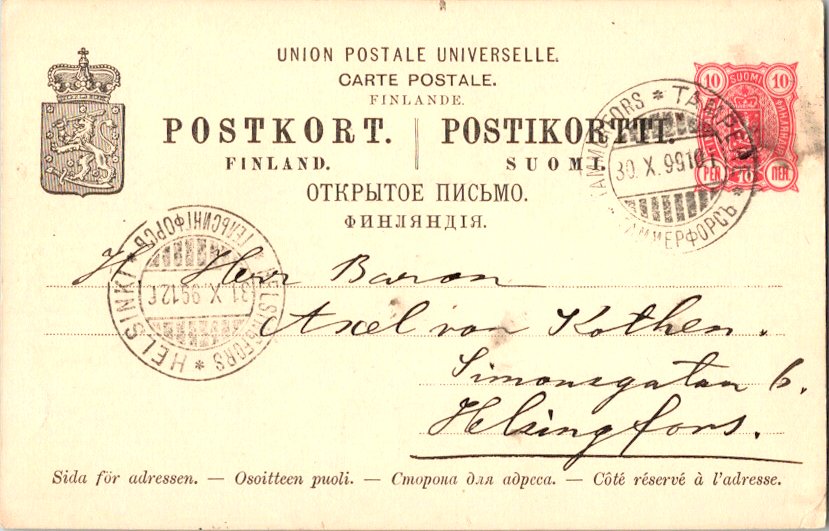 UNION POSTALE UNIVERSELLE.
CARTE POSTALE.
FINLANDE.
POSTKORT. POSTIKORTTI.
FINLAND. SUOMI.
ОТКРЫТОЕ ПИСЬМО.
ФИНЛЯНДІЯ.
10 SUOMI 10
PEN 10 ПЕН
TAMMERFORS * TAMPERE *
30.X.99 10
ТАММЕРФОРСЪ
HELSINKI * HELSINGFORS
31.X.99 12
ГЕЛЬСИНГФОРСЪ
H. Herr Baron
Axel von Kothen.
Simonsgatan 6.
Helsingfors.
Sida för adressen. — Osoitteen puoli. — Сторона для адреса. — Côté réservé à l'adresse.